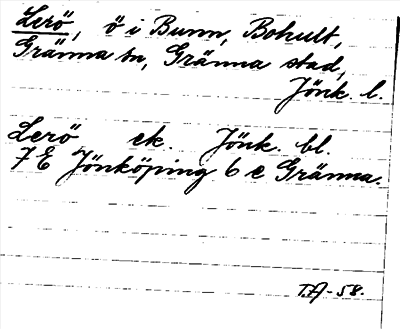 Lerö, ö i Bunn, Bohult,
Gränna sn, Gränna stad,
Jönk. l.
Lerö ek. Jönk. bl.
7 E Jönköping 6 e Gränna.
T.A-58.